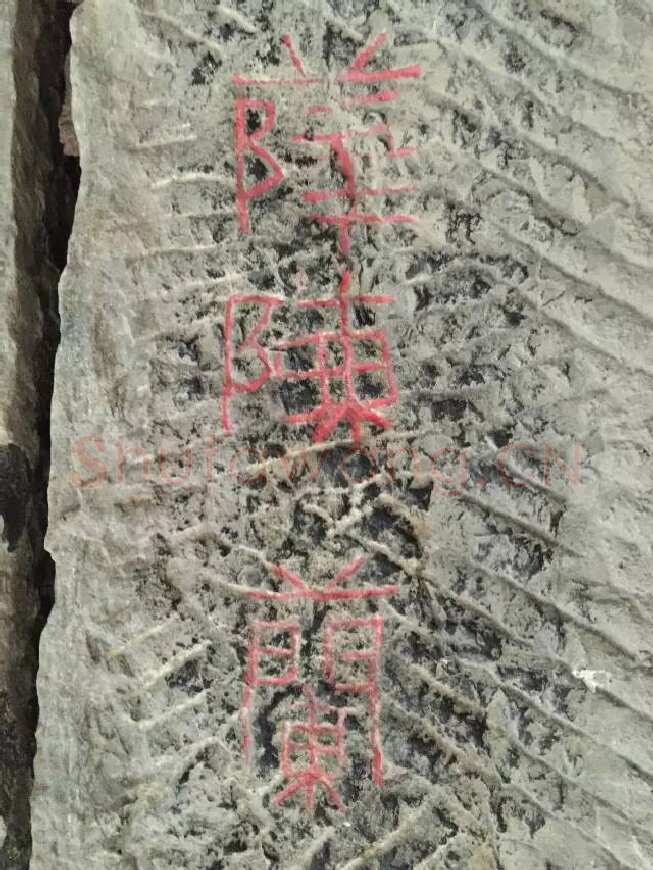 陳
蘭
Shufawang.CN